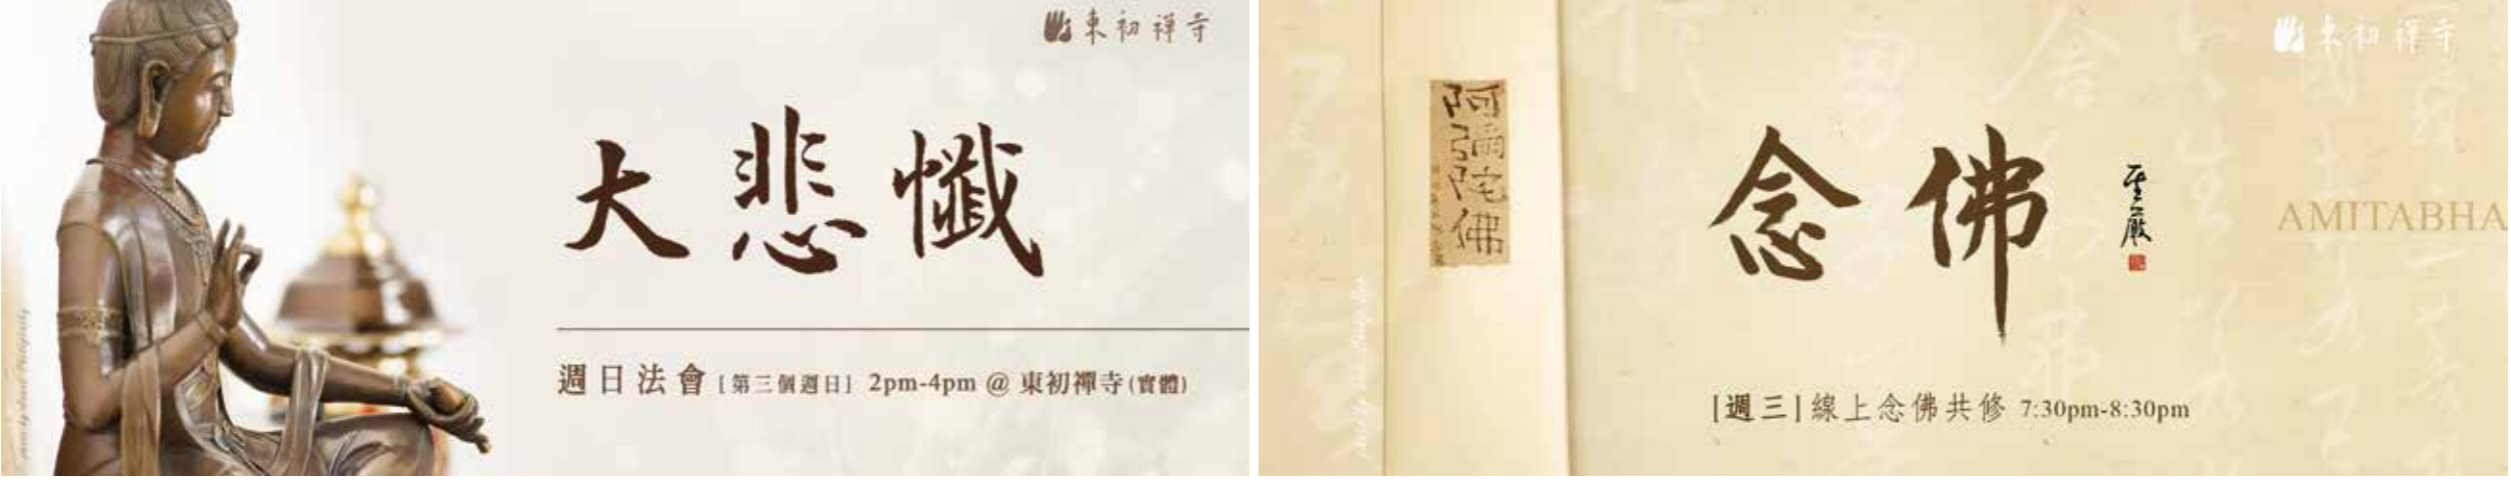 東初禪寺
大悲懺
週日法會 [第三個週日] 2pm-4pm @ 東初禪寺(實體)
東初禪寺
阿彌陀佛
念佛
聖嚴
AMITABHA
[週三] 線上念佛共修 7:30pm-8:30pm